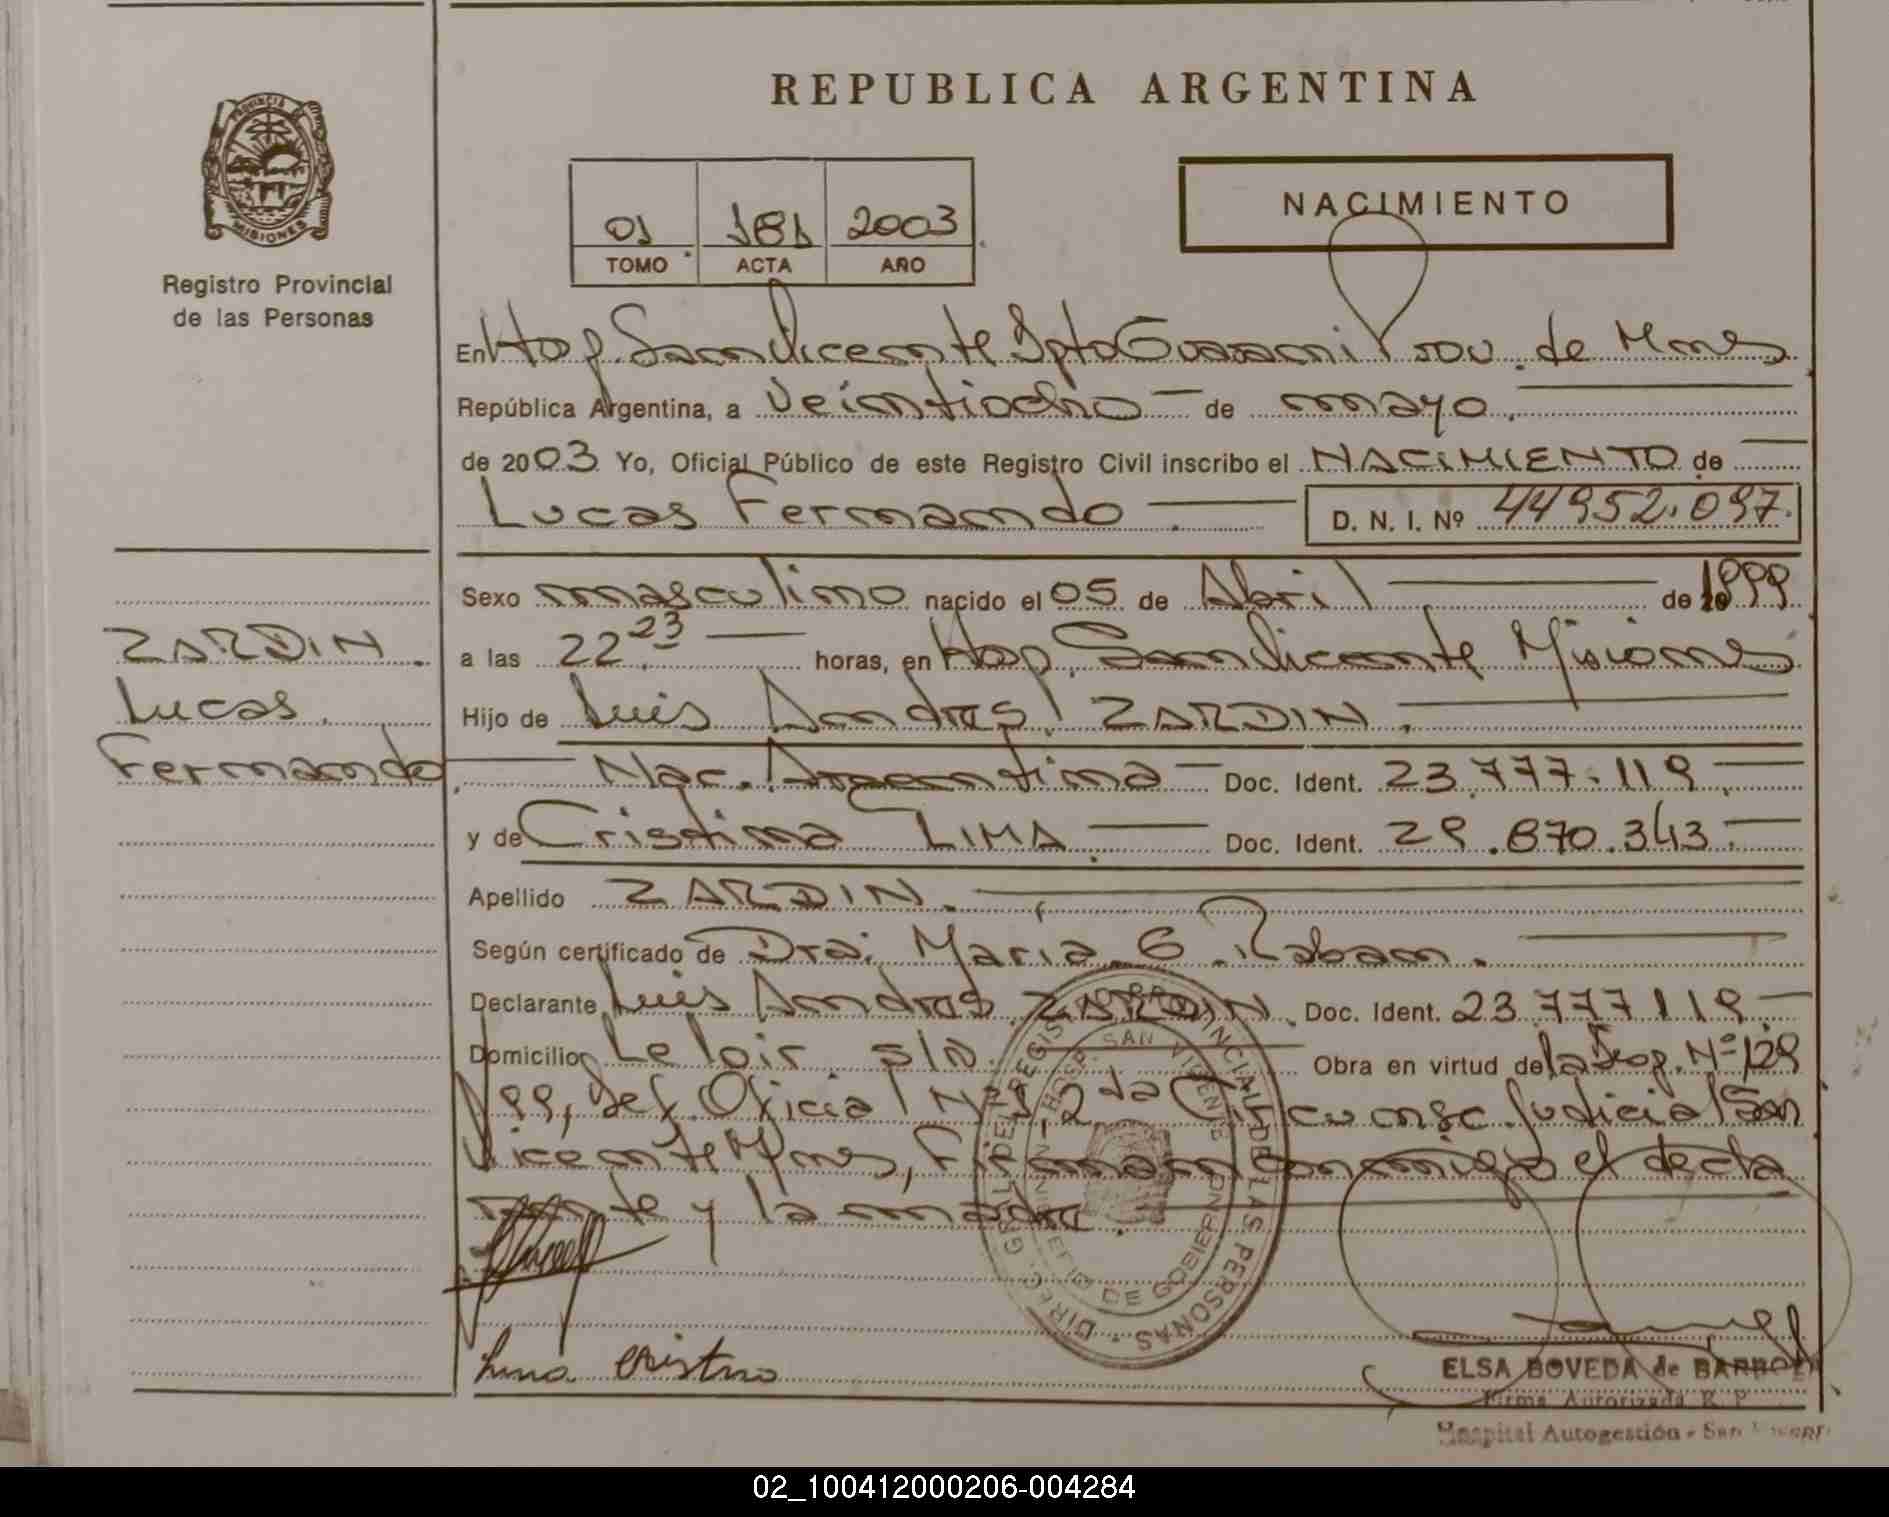 REPUBLICA ARGENTINA
PROVINCIA DE MISIONES
Registro Provincial
de las Personas
01 181 2003
TOMO ACTA AÑO
NACIMIENTO
En Hosp. San Vicente Dpto Guarani Prov. de Mnes
República Argentina, a veintiocho de mayo.
de 2003 Yo, Oficial Público de este Registro Civil inscribo el NACIMIENTO de
Lucas Fernando
D. N. I. Nº 44952.097.
Sexo masculino nacido el 05 de Abril de 1999
a las 22.23 horas, en Hosp. San Vicente Misiones
Hijo de Luis Andres ZARDIN.
Nac. Argentina Doc. Ident. 23.777.119
y de Cristina LIMA. Doc. Ident. 29.870.343
Apellido ZARDIN.
Según certificado de Dra. Maria G. Raban.
Declarante Luis Andres ZARDIN. Doc. Ident. 23.777119
Domicilio Leloir s/n. Obra en virtud de la Nº 129
/99, Def. Oficial Nº 1 2da Circunsc. Judicial San
Vicente Mnes, Firman conmigo el decla
rante y la madre.
ZARDIN.
Lucas
Fernando
DIREC. GRAL. DEL REGISTRO PROVINCIAL DE LAS PERSONAS
HOSP. SAN VICENTE
DE GOBIERNO
Lima Cristina
ELSA BOVEDA de
Firma Autorizada R. P.
Hospital Autogestión - San
02_100412000206-004284